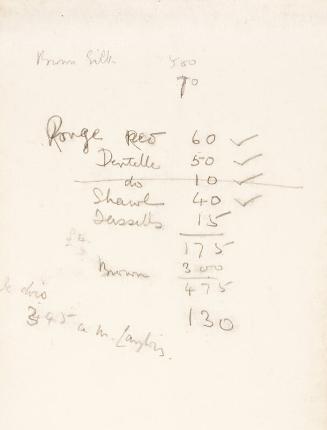 Brown Silk 500
70
Rouge Red 60 ✓
Dentelle 50 ✓
do 10 ✓
Shawl 40 ✓
Tassells 15
175
Brown 300
475
130
345 a M. Langlois.